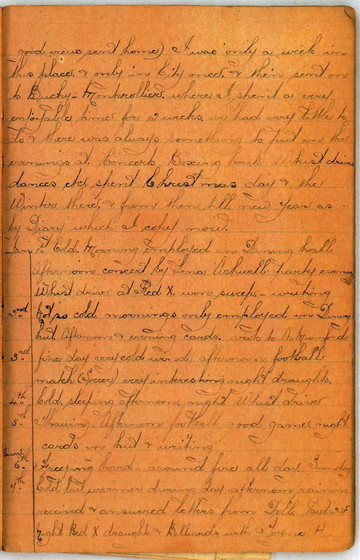 good views sent home) I was only a week in
this place & only in City once, & then sent on
to Buchy - Montérollier where I spent a very
enjoyable time for 3 weeks, we had very little to
do & there was always something to put in the
evenings at. Concerts Boxing bouts Whist drives
dances etc, spent Christmas day & the
Winter there, & from then till new year as
by Diary which I copy now.
Jan 1st Cold. Morning Employed in Dining Hall
Afternoon concert by Lena Ashwell party evening
Whist drive at Red X. won sweep - writing
2nd Not so cold mornings only employed in Dining
hut Afternoon & evening cards. wrote to A. Mumford
3rd fine day very cold wind afternoon football
match (Soccer) very interesting night draughts.
4th Cold, sleeping afternoon, night Whist drive
5th Thawing. Afternoon football good game, night
cards in hut & writing
6th Freezing hard - around fire all day Sunday
7th Cold but warmer during day, afternoon raining
received & answered letters from
night Red X draughts & Billiards with